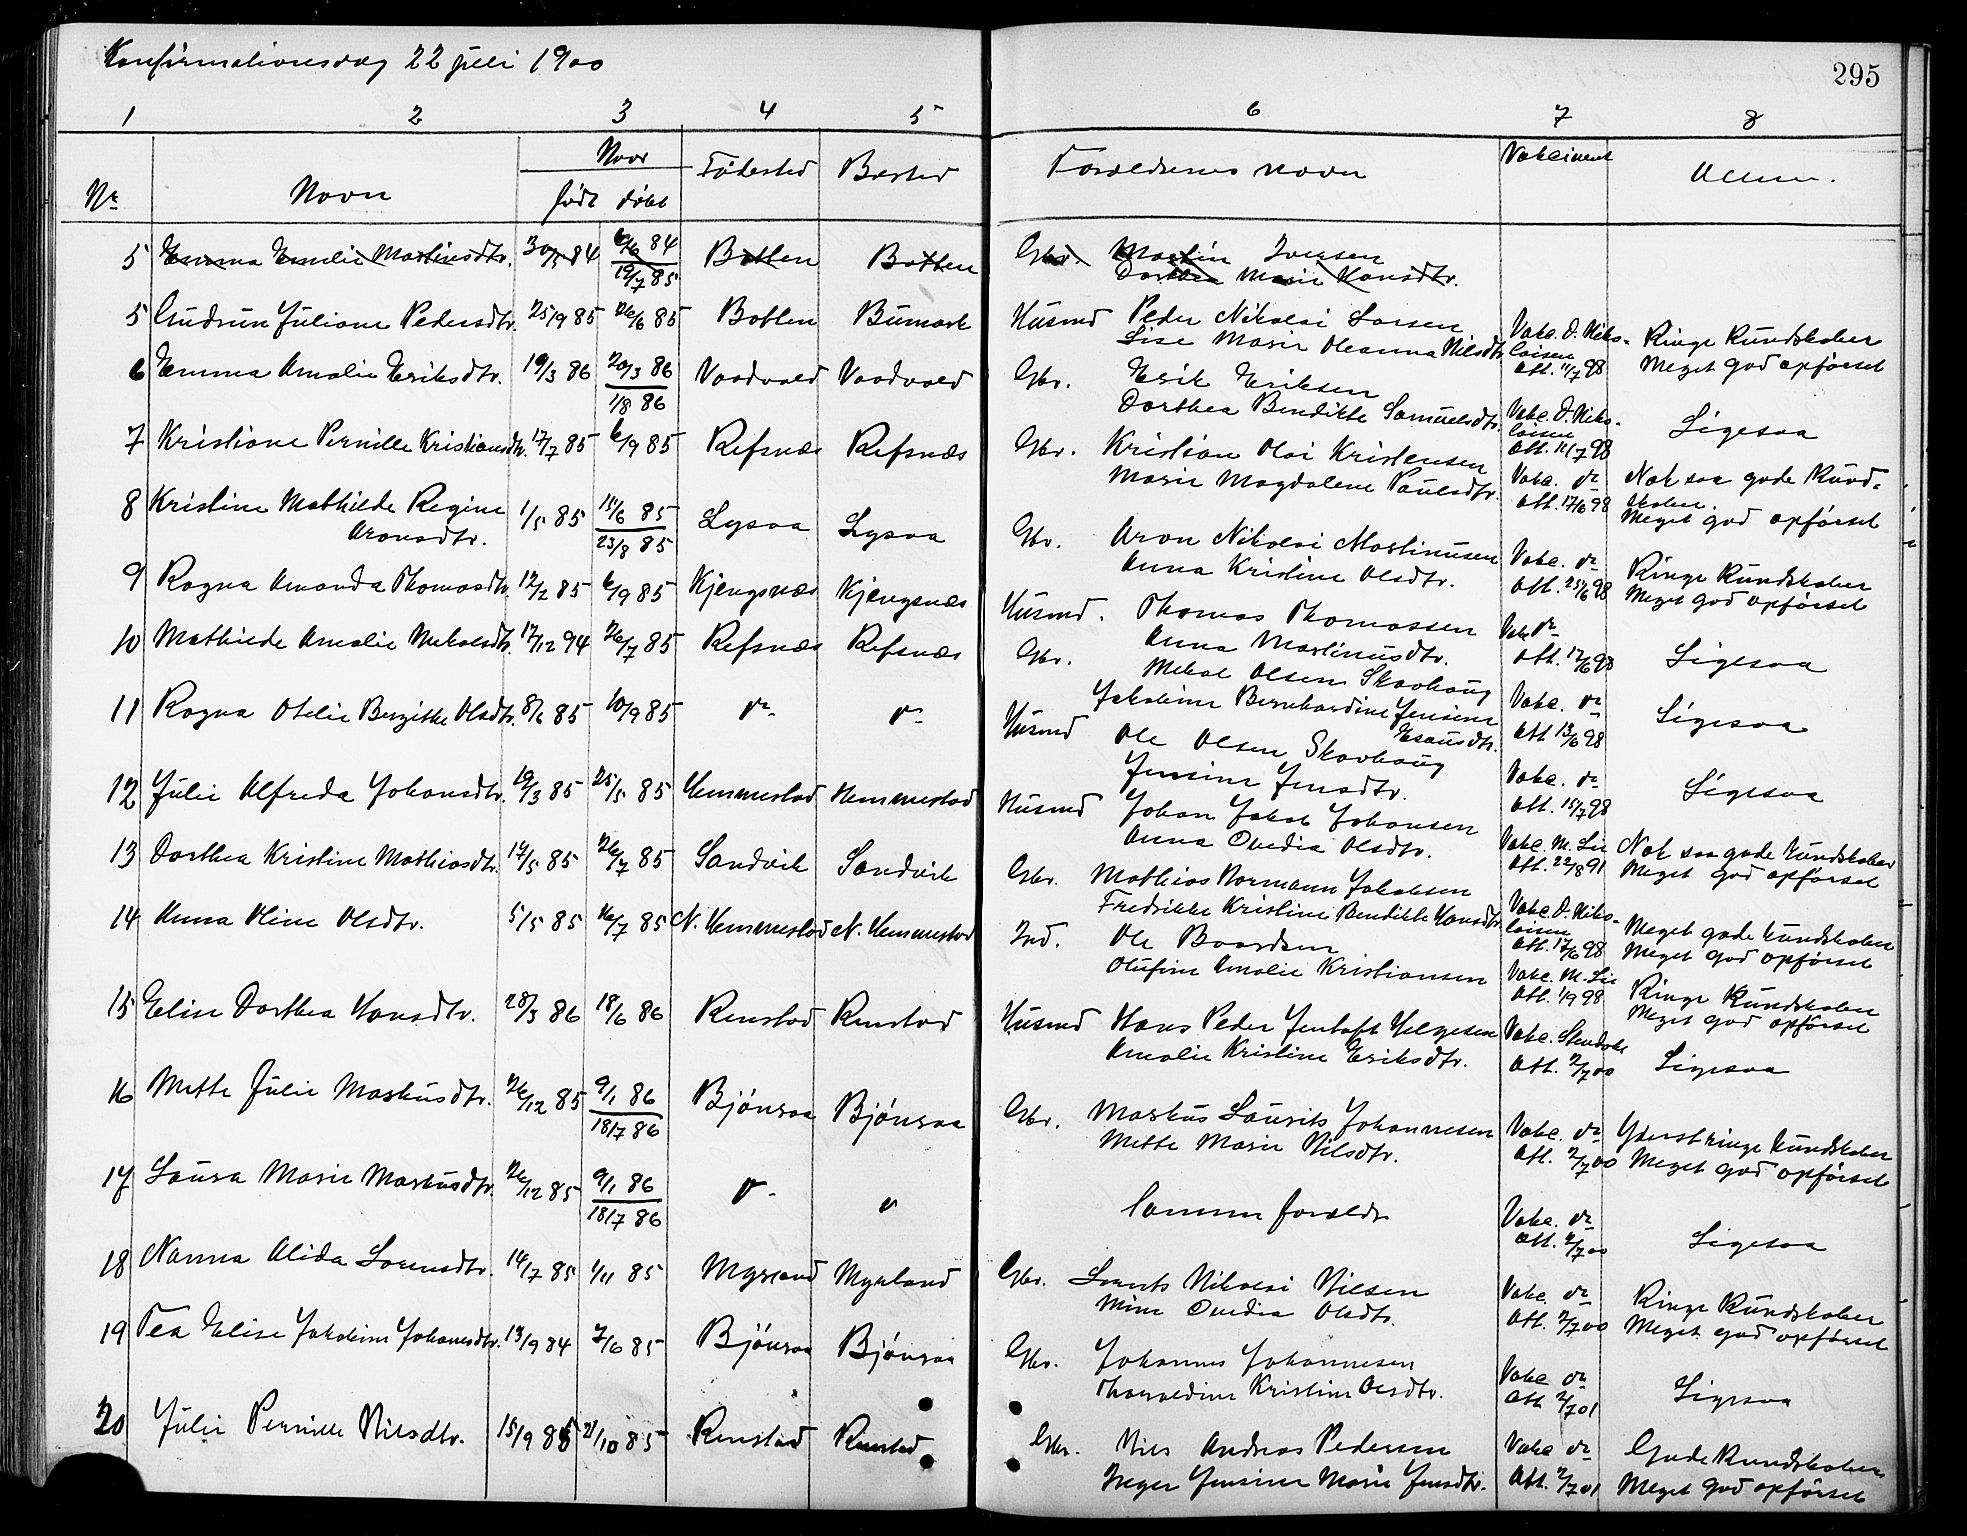 Konfirmationsdag 22 juli 1900
295
1 2 3 4 5 6 7 8
Nr Navn Naar født døbt Fødested Bosted Forældrenes navn Vakcineret Anm.
5 Emma Emelie Martinsdtr. 30/5 84 6/6 84 Botten Botten Gbr. Martin Iversen
19/7 85 Dorthea Marie Hansdtr.
5 Gudrun Juliane Pedersdtr. 25/9 85 26/6 85 Botten Bumark Husmd Peder Nikolai Larsen Vakc. D. Niko- Ringe Kundskaber
Lise Marie Oleanna Nilsdtr. laisen Att. 11/7 98 Meget god opførsel
6 Emma Amalie Eriksdtr. 19/3 86 20/3 86 Vaadvold Vaadvold Gbr. Erik Eriksen
1/8 86 Dorthea Bendikte Samuelsdtr. Vakc. D. Niko- laisen Att. 11/7 98 Ligesaa
7 Kristiane Pernille Kristiansdtr. 17/7 85 6/9 85 Refsnæs Refsnæs Gbr. Kristian Olai Kristensen
Marie Magdalene Paulsdtr. Vakc. do Att. 17/6 98 Nok saa gode Kund- skaber. Meget god opførsel
8 Kristine Mathilde Regine 1/5 85 15/6 85 Lysaa Lysaa Gbr. Aron Nikolai Martinusen
Aronsdtr. 23/8 85 Anna Kristine Olsdtr. Vakc. do Att. 25/6 98 Ringe Kundskaber Meget god opførsel
9 Ragna Amanda Thomasdtr. 12/2 85 6/9 85 Kjengsnæs Kjengsnæs Husmd. Thomas Thomassen
Anna Martinusdtr. Vakc do Att. 17/6 98 Ligesaa
10 Mathilde Amalie Mikalsdtr. 17/12 94 26/7 85 Refsnæs Refsnæs Gbr. Mikal Olsen Skavhaug
Jakobine Bernhardine Jensine Esausdtr. Vakc. do Att 13/6 98 Ligesaa
11 Ragna Otelie Bergitte Olsdtr. 8/6 85 10/9 85 do do Husmd Ole Olsen Skavhaug
Jensine Jensdtr. Vakc. do Att. 15/7 98 Ligesaa
12 Julie Alfreda Johansdtr. 19/3 85 25/5 85 Hemmestad Hemmestad Husmd Johan Jakob Johansen
Anna Ovedia Olsdtr. Vakc. M. Lie Att. 22/8 91 Nok saa gode Kundskaber Meget god opførsel
13 Dorthea Kristine Mathiasdtr. 14/5 85 26/7 85 Sandvik Sandvik Gbr. Mathias Normann Jakobsen
Fredrikke Kristine Bendikte Hansdtr. Vakc. D. Niko- laisen Att. 17/6 98 Meget gode Kundskaber Meget god opførsel
14 Anna Oline Olsdtr. 5/5 85 26/7 85 N. Hemmestad N. Hemmestad Ind. Ole Baardsen
Olufine Amalie Kristiansen Vakc. M. Lie Att. 1/9 98 Ringe Kundskaber Meget god opførsel
15 Elise Dorthea Hansdtr. 28/3 86 18/6 86 Renstad Renstad Husmd Hans Peder Jentoft Helgesen
Amalie Kristine Eriksdtr. Vakc. Att. 2/7 00 Ligesaa
16 Mette Julie Markusdtr. 26/12 85 9/1 86 Bjónsaa Bjónsaa Gbr. Markus Laurits Johannesen
18/7 86 Mette Marie Nilsdtr. Vakc. do Att. 2/7 00 Yderst ringe Kundskaber Meget god opførsel
17 Laura Marie Markusdtr. 26/12 85 9/1 86 do do Samme forældr
18/7 86 Vakc. do Att. 2/7 00 Ligesaa
18 Nanna Alida Lorensdtr. 14/7 85 1/11 85 Myrland Myrland Gbr. Lorents Nikolai Nilsen
Mine Ovedia Olsdtr. Vakc. do Att. 2/7 00 Ringe Kundskaber Meget god opførsel
19 Tea Elise Jakobine Johansdtr. 13/9 84 7/6 85 Bjónsaa Bjónsaa Gbr. Johannes Johannesen
Tharaldine Kristine Olsdtr. Vakc do Att 2/7 01 Ligesaa
20 Julie Pernille Nilsdtr. 15/9 85 21/10 85 Renstad Renstad Gbr. Nils Andreas Pedersen
Inger Jensine Marie Jensdtr. Vakc do Att. 2/7 01 Gode Kundskaber Meget god opførsel